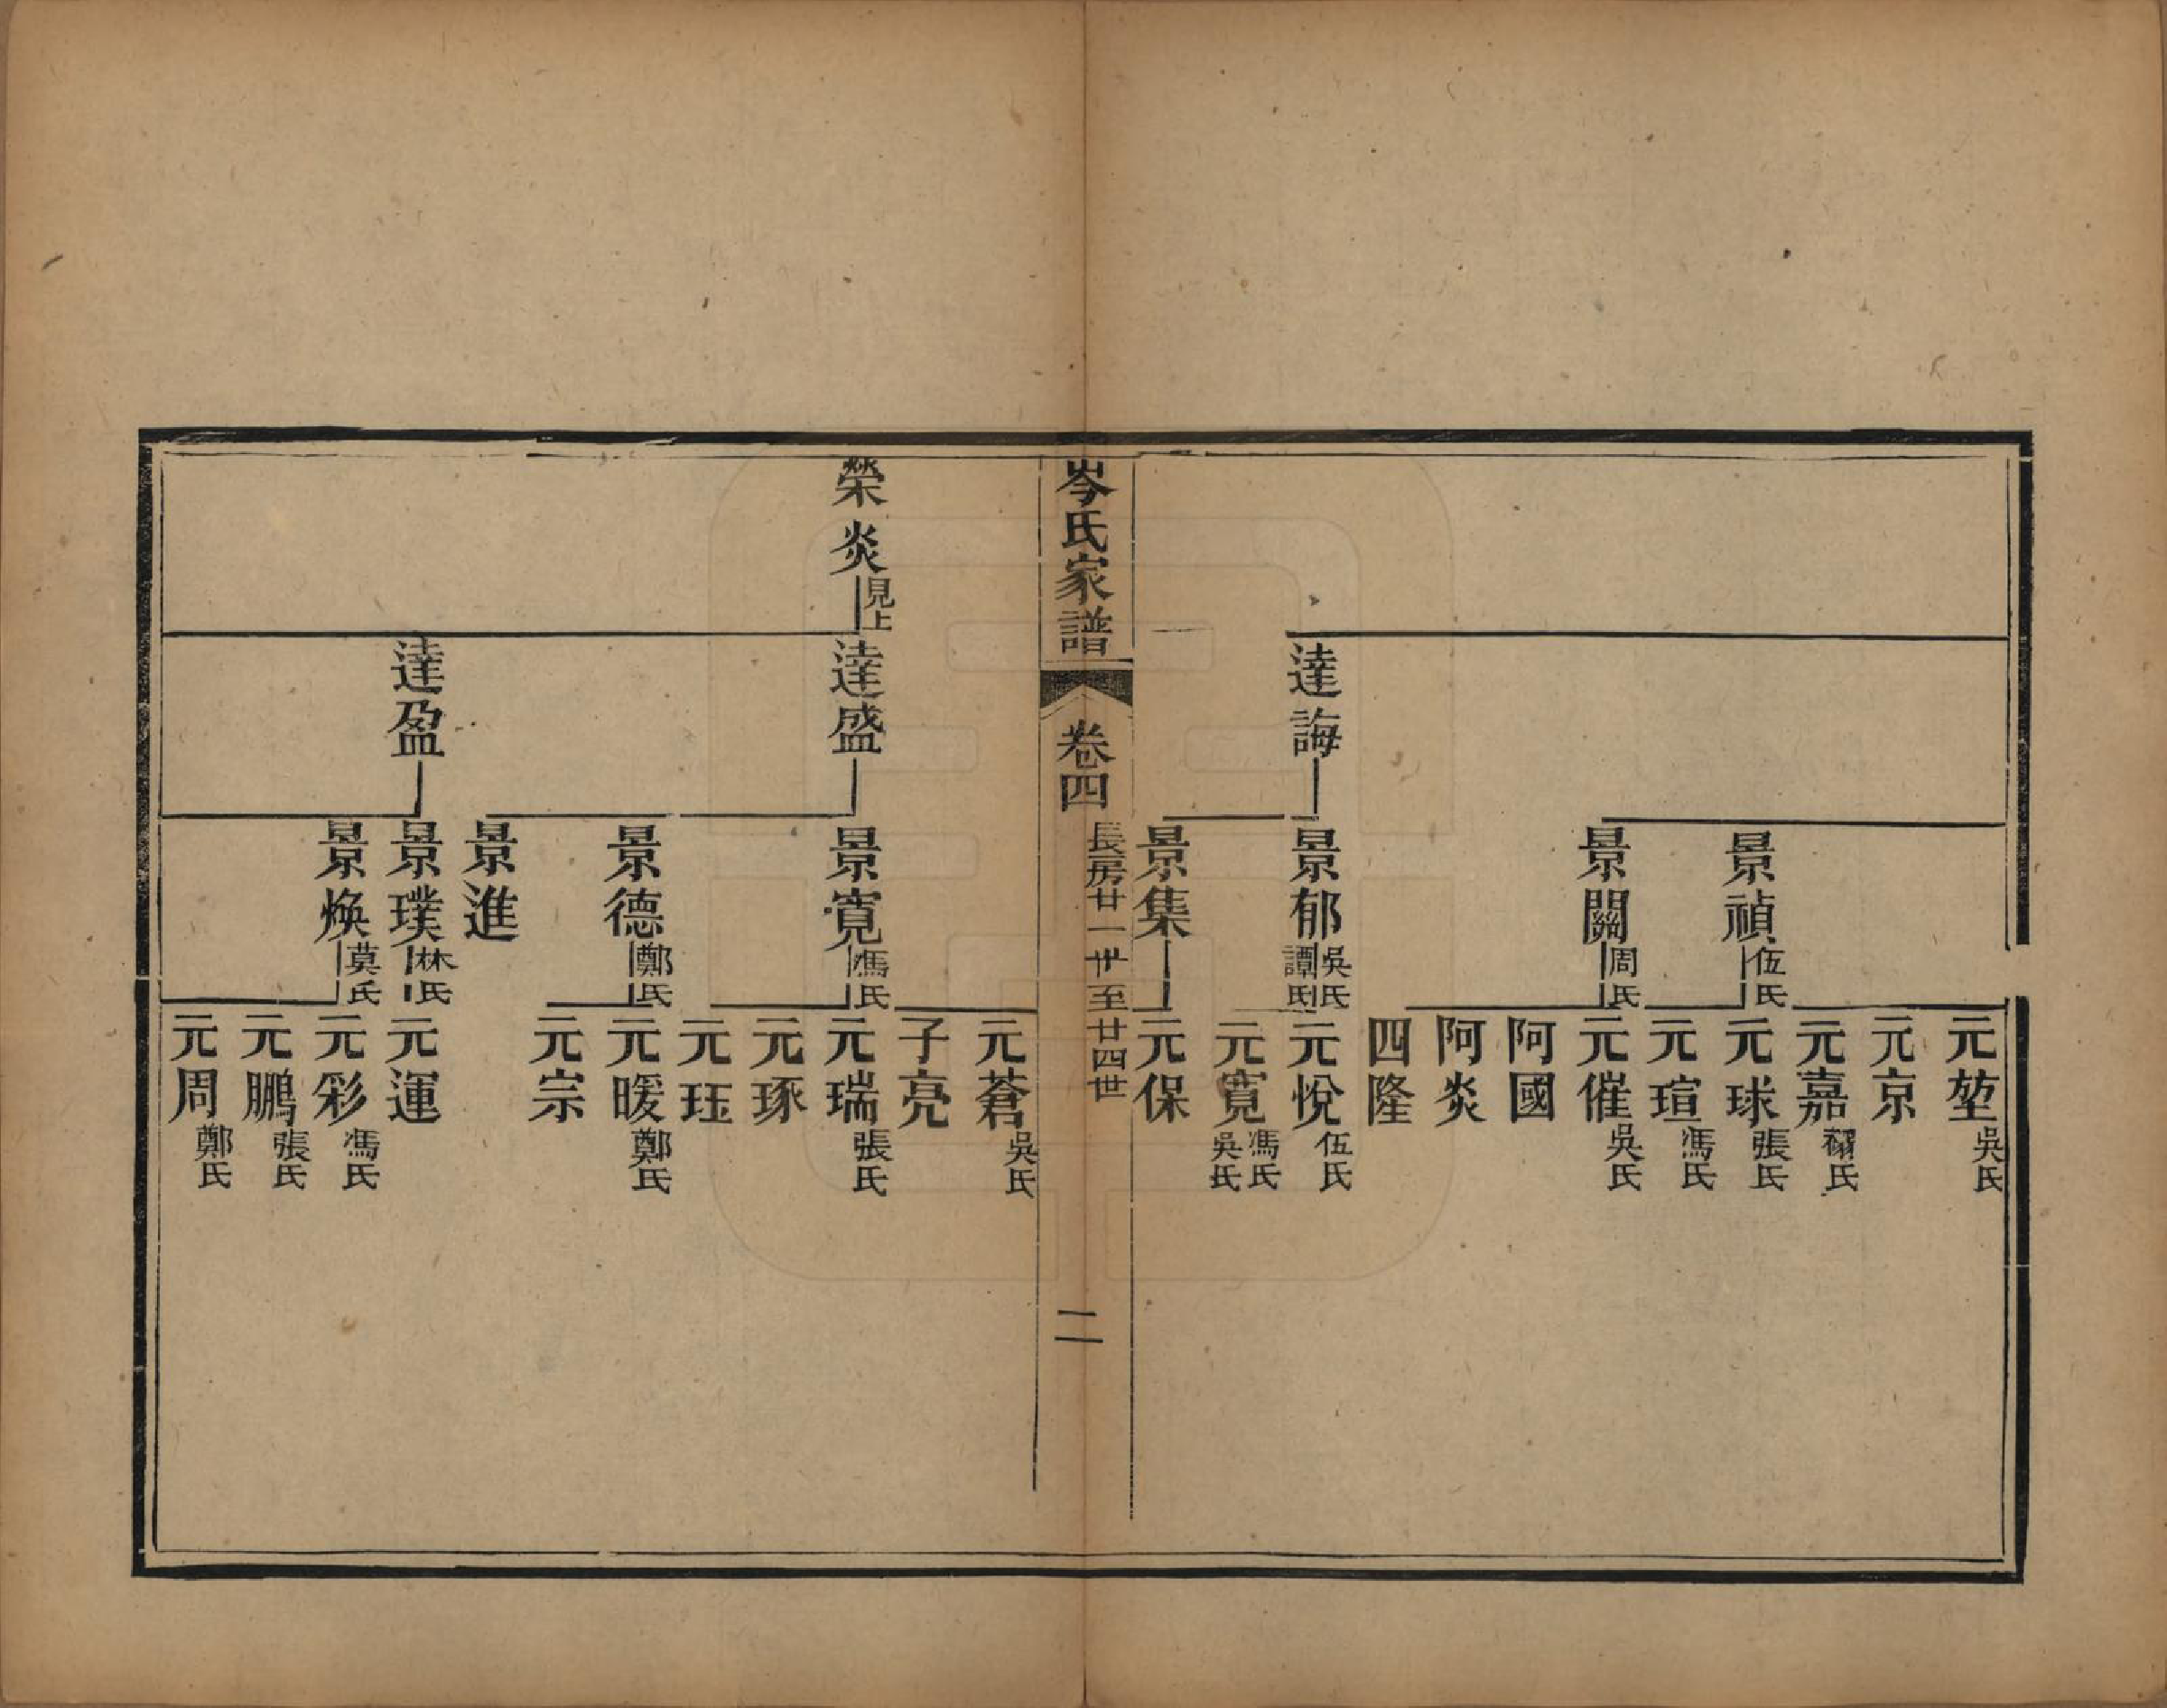 達誨
景禎 伍氏
景闗 周氏
景郁 吳氏 譚氏
景集
元堃 吳氏
元京
元嘉 氏
元球 張氏
元瑄 馮氏
元催 吳氏
阿國
阿炎
四隆
元悅 伍氏
元寛 馮氏 吳氏
元保
岑氏家譜
卷四
長房廿一世至廿四世
二
榮炎 見上
達盛
達盈
景寛 馮氏
景德 鄭氏
景進
景璞 林氏
景煥 莫氏
元蒼 吳氏
子亮
元瑞 張氏
元琢
元珏
元暖 鄭氏
元宗
元運
元彩 馮氏
元鵬 張氏
元周 鄭氏